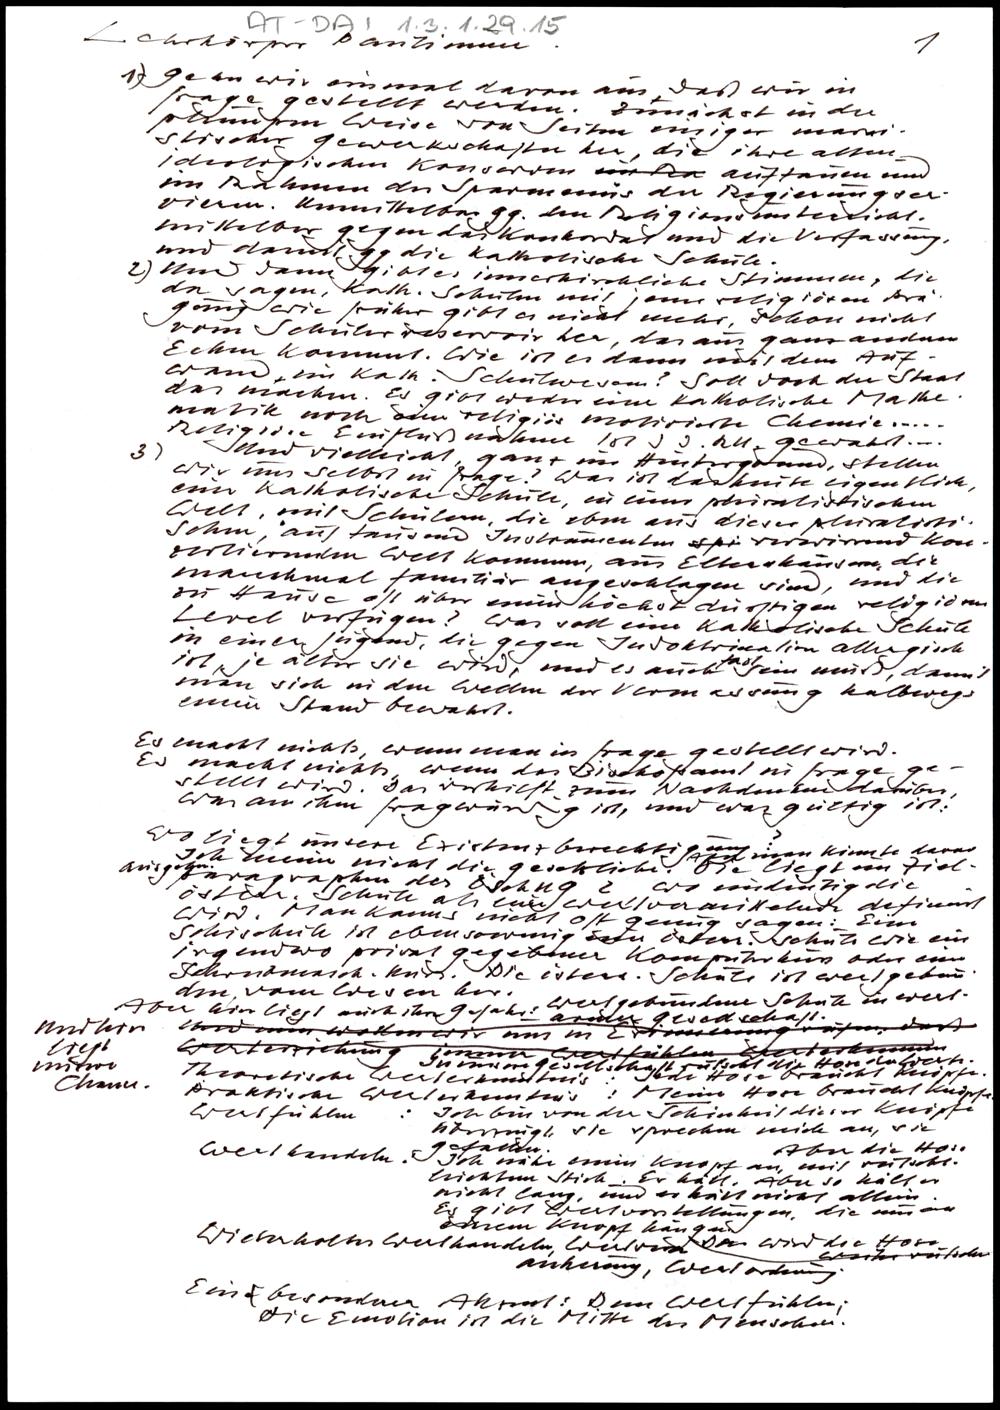 AT-DAI 1.3.1.29.15
Lehrkörper Paulinum. 1
1) Gehn wir einmal davon aus, daß wir in
frage gestellt werden. Zunächst in der
plumpen Weise von Seiten einiger marxi-
stischer Gewerkschafter her, die ihre alten
ideologischen Konserven auftauen und
im Rahmen des Sparmenüs der Regierung ser-
vieren. Unmittelbar gg. den Religionsunterricht.
mittelbar gegen das Konkordat und die Verfassung,
und damit gg die katholische Schule.
2) Und dann gibt es innerkirchliche Stimmen, die
da sagen, Kath. Schulen mit jener religiösen Prä-
gung wie früher gibt es nicht mehr, schon nicht
vom Schülerreservoir her, das aus ganz anderen
Ecken kommt. Wie ist es dann mit dem Auf-
wand im Kath. Schulwesen? Soll doch der Staat
das machen. Es gibt weder eine katholische Mathe-
matik noch eine religiös motivierte Chemie.....
Religiöse Einflußnahme ist gewahrt....
3) Und vielleicht, ganz im Hintergrund, stellen
wir uns selbst in frage? Was ist das heute eigentlich,
eine Katholische Schule, in einer pluralistischen
Welt, mit Schülern, die eben aus dieser pluralisti-
schen, auf tausend Instrumenten verwirrend kon-
zertierenden Welt kommen, aus Elternhäusern, die
manchmal familiär angeschlagen sind, und die
zu Hause oft über einen höchst dürftigen religiösen
Level verfügen? Was soll eine Katholische Schule
in einer Jugend, die gegen Indoktrination allergisch
ist, je älter sie wird, und es auch fast sein muß, damit
man sich in den Wellen der Vermassung halbwegs
einen Stand bewahrt.
Es macht nichts, wenn man in frage gestellt wird.
Es macht nichts, wenn das Bischofsamt in frage ge-
stellt wird. Das verhilft zum Nachdenken darüber,
was an ihm fragwürdig ist, und was gültig ist.
Wo liegt unsere Existenzberechtigung?
Ich meine nicht die gesetzliche. Und man könnte davon
ausgehn. Die liegt im Ziel-
paragraphen des ÖSchUG 2 wo eindeutig die
österr. Schule als eine wertvermittelnde definiert
wird. Man kanns nicht oft genug sagen: Eine
Schischule ist ebensowenig österr. Schule wie ein
irgendwo privat gegebener Komputerkurs oder ein
Schreibmasch. kurs. Die österr. Schule ist wertgebun-
den vom Wesen her.
Aber hier liegt auch ihre Gefahr: wertgebundene Schule in wert-
armer Gesellschaft.
Und hier
liegt
unsere
Chance.
In unserer Gesellschaft rutscht die Hose der Werte.
Theoretische Werterkenntnis: Jede Hose braucht Knöpfe.
Praktische Werterkenntnis: Meine Hose braucht Knöpfe.
Wertfühlen : Ich bin von der Schönheit dieser Knöpfe
überzeugt, sie sprechen mich an, sie
gefallen. Aber die Hose
Werthandeln: Ich nähe einen Knopf an, mit rutscht.
leichtem Stich. Er hält. Aber so hält er
nicht lang, und er hält nicht allein.
Es gibt Wertvorstellungen, die nur an
einem Knopf hängen
Wiederholtes Werthandeln, Wertver- Da wird die Hose
ankerung, Wertordnung
Ein besonderer Akzent: Dem Wertfühlen;
Die Emotion ist die Mitte des Menschen.